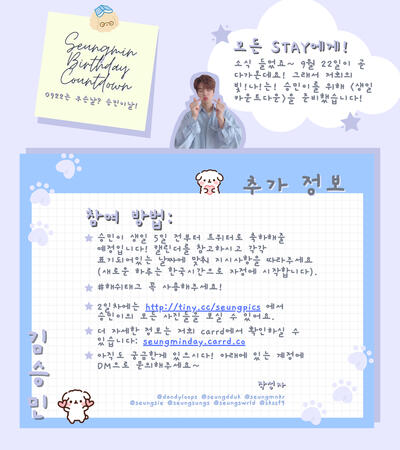 Seungmin
Birthday
Countdown
0922는 무슨날? 승민이날!
모든 STAY에게!
소식 들었죠~ 9월 22일이 곧
다가온데요! 그래서 저희의
빛!나!는! 승민이를 위해 (생일
카운트다운)을 준비했습니다!
추가 정보
참여 방법:
승민이 생일 5일 전부터 트위터로 축하해줄
예정입니다! 캘린더를 참고하시고 각각
표기되어있는 날짜에 맞춰 지시사항을 따라주세요
(새로운 하루는 한국시간으로 자정에 시작합니다).
#해쉬태그 꼭 사용해주세요!
2일차에는 http://tiny.cc/seungpics 에서
승민이의 모든 사진들을 보실 수 있어요.
더 자세한 정보는 저희 carrd에서 확인하실 수
있습니다: seungminday.carrd.co
아직도 궁금한게 있으시다! 아래에 있는 계정에
DM으로 문의해주세요~
김승민
작성자
@dandyloops @seungdduk @seungmnkr
@seungsie @seungsungs @seungswrld @skssf9